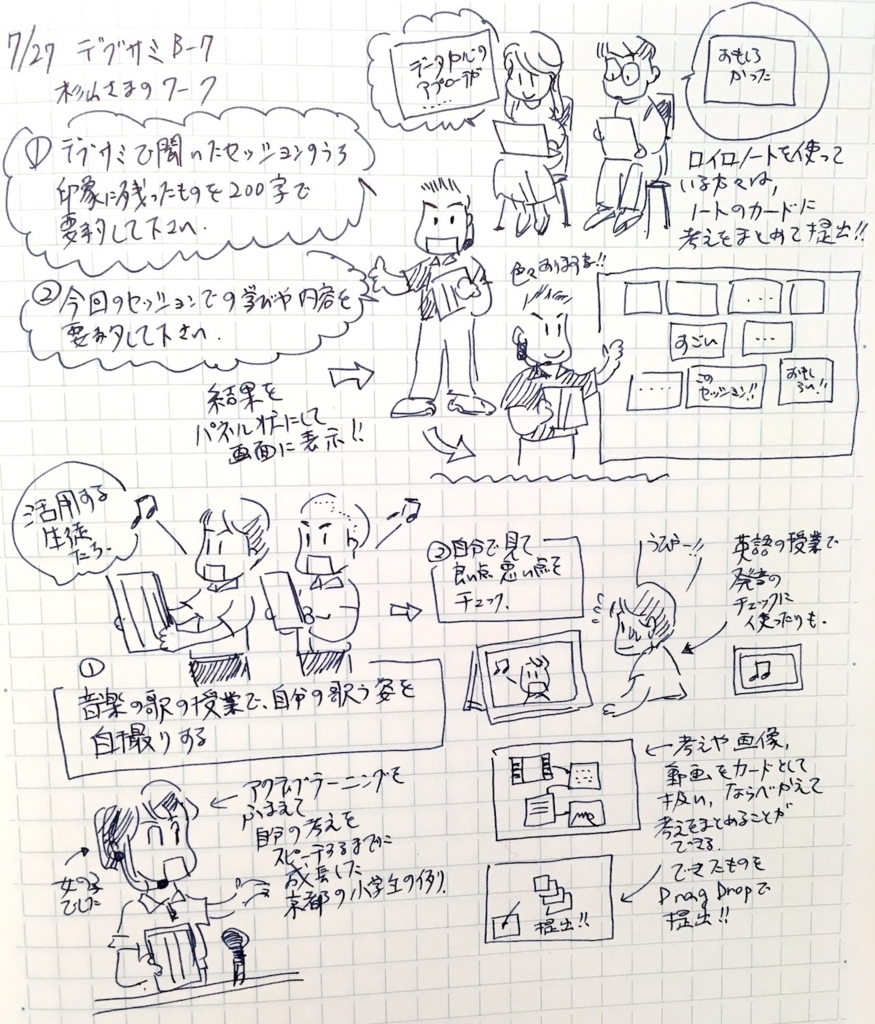 7/27 デブサミ B-7
杉山さまのワーク
① デブサミで聞いたセッションのうち
印象に残ったものを200字で
要約して下さい.
データやらの
アプローチが
.....
おもしろ
かった
ロイロノートを使って
いる方々は,
ノートのカードに
考えをまとめて提出!!
② 今回のセッションでの学びや内容を
要約して下さい.
色々ありますな!!
...
すごい
...
.....
この
セッション!!
おもし
ろい!!
結果を
パネル状にして
画面に表示!!
活用する
生徒
たち.
①
音楽の歌の授業で、自分の歌う姿を
自撮りする
② 自分で見て
良い点 悪い点を
チェック.
うひゃー!!
英語の授業で
発音の
チェックに
使ったりも.
アクティブラーニングを
ふまえて
自分の考えを
スピーチするまでに
成長した
京都の小学生の例.
女の子
でした
考えや画像,
動画をカードとして
扱い, ならべかえて
考えをまとめることが
できる.
できたものを
Drag Dropで
提出!!
提出!!